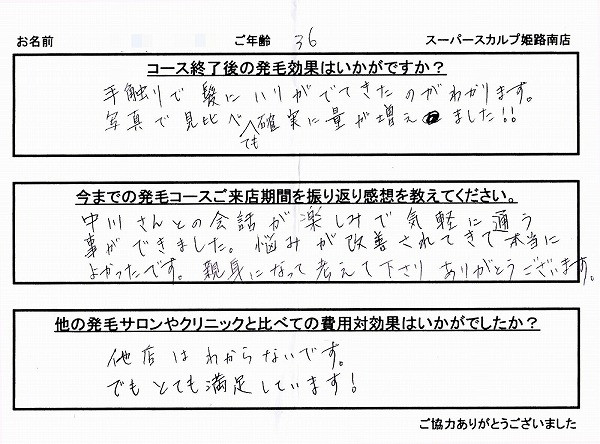 お名前 ご年齢 36 スーパースカルプ姫路南店
コース終了後の発毛効果はいかがですか？
手触りで髪にハリがでてきたのがわかります。
写真で見比べても確実に量が増えました!!
今までの発毛コースご来店期間を振り返り感想を教えてください。
中川さんとの会話が楽しみで気軽に通う
事ができました。悩みが改善されてきて本当に
よかったです。親身になって考えて下さりありがとうございます。
他の発毛サロンやクリニックと比べての費用対効果はいかがでしたか？
他店はわからないです。
でもとても満足しています!
ご協力ありがとうございました